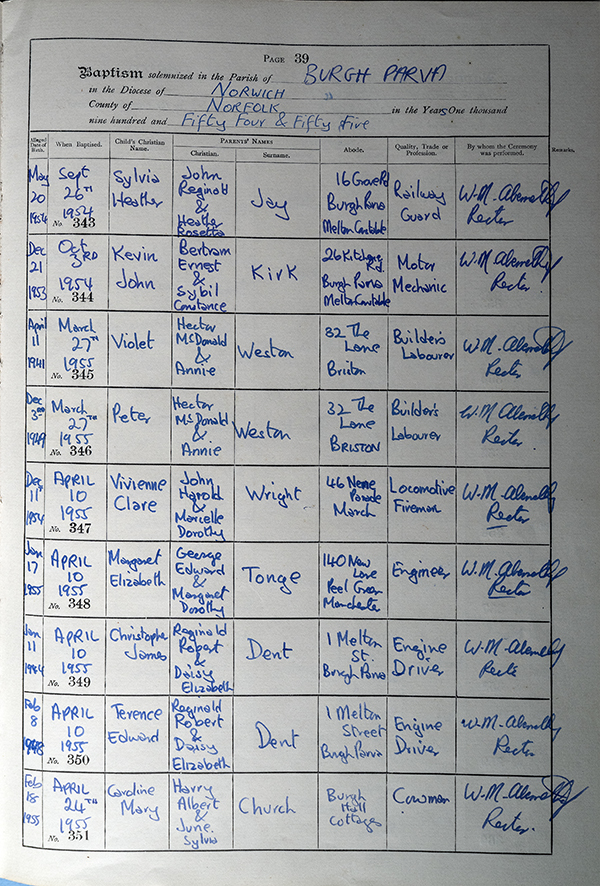 PAGE 39
Baptism solemnized in the Parish of BURGH PARVA
in the Diocese of NORWICH
County of NORFOLK in the Years One thousand
nine hundred and Fifty Four & Fifty Five
Alleged Date of Birth. When Baptised. Child's Christian Name. PARENTS' NAMES Christian. Surname. Abode. Quality, Trade or Profession. By whom the Ceremony was performed. Remarks.
May 20 1954
Sept 26TH 1954
No. 343
Sylvia Heather
John Reginald & Heather Rosetta
Jay
16 Grove Rd Burgh Parva Melton Constable
Railway Guard
Rector
Dec 21 1953
Oct 3RD 1954
No. 344
Kevin John
Bertram Ernest & Sybil Constance
Kirk
Burgh Parva Melton Constable
Motor Mechanic
Rector
April 11 1941
March 27TH 1955
No. 345
Violet
Hector McDonald & Annie
Weston
32 The Lane Briston
Builder's Labourer
Rector
Dec 3RD 1949
March 27TH 1955
No. 346
Peter
Hector McDonald & Annie
Weston
32 The Lane BRISTON
Builder's Labourer
Rector
Dec 11 1954
APRIL 10 1955
No. 347
Vivienne Clare
John Harold & Marcelle Dorothy
Wright
46 Nene Parade March
Locomotive Fireman
Rector
Jan 17 1955
APRIL 10 1955
No. 348
Margaret Elizabeth
George Edward & Margaret Dorothy
Tonge
140 New Lane Peel Green Manchester
Engineer
Rector
Jan 11
APRIL 10 1955
No. 349
Christopher James
Reginald Robert & Daisy Elizabeth
Dent
1 Melton St. Burgh Parva
Engine Driver
Rector
Feb 8
APRIL 10 1955
No. 350
Terence Edward
Reginald Robert & Daisy Elizabeth
Dent
1 Melton Street Burgh Parva
Engine Driver
Rector
Feb 18 1955
APRIL 24TH 1955
No. 351
Caroline Mary
Harry Albert & June Sylvia
Church
Burgh Hall Cottages
Cowman
Rector.